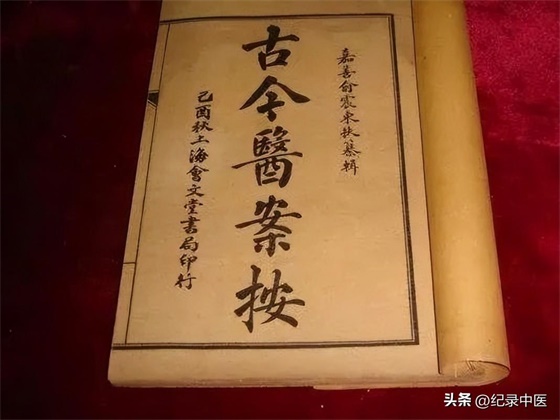 嘉善俞震東扶纂輯
古今醫案按
己酉秋上海會文堂書局印行
头条 @纪录中医